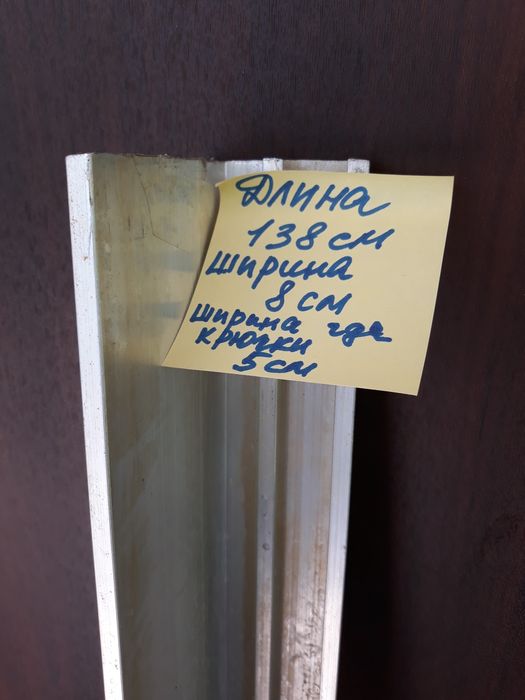 Длина
138 см
ширина
8 см
ширина где
крючки
5 см